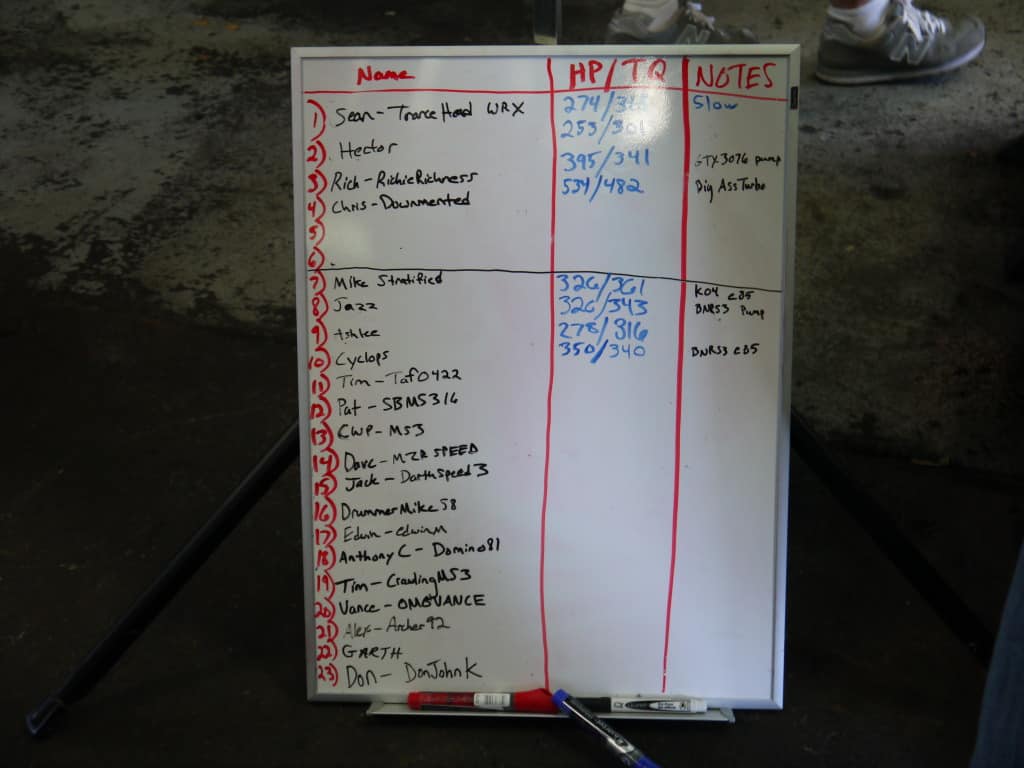 Name HP/TQ NOTES
1) Sean - Trance Head WRX 274/ Slow
253/301
2) Hector 395/341 GTX3076 pump
3) Rich - RichieRichness 534/482 Big Ass Turbo
4) Chris - Downmented
5)
6)
7) Mike Stratified 326/361 K04 e85
8) Jazz 326/343 BNRS3 Pump
9) Ashlee 278/316
10) Cyclops 350/340 BNRS3 e85
11) Tim - Taf0422
12) Pat - SBMS316
13) CWP - MS3
14) Dave - MZR SPEED
15) Jack - Darthspeed3
16) DrummerMike58
17) Edwin - edwinm
18) Anthony C - Domino81
19) Tim - CrawlingMS3
20) Vance - OMGVANCE
21) Alex - Archer92
22) GARTH
23) Don - DonJohnK